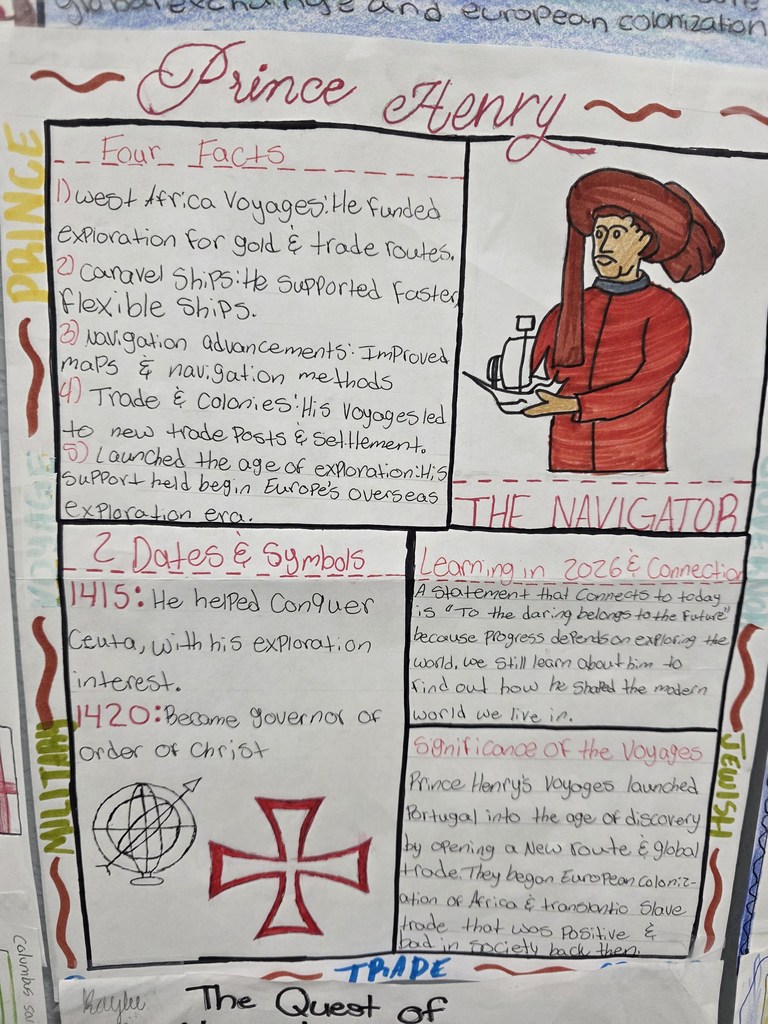 global exchange and european colonization
Prince Henry
PRINCE
Four Facts
1) West Africa Voyages: He funded
exploration for gold & trade routes.
2) Caravel Ships: He supported faster,
flexible ships.
3) Navigation advancements: Improved
maps & navigation methods
4) Trade & Colonies: His voyages led
to new trade posts & settlement.
5) Launched the age of exploration: His
support held begin Europe's overseas
exploration era.
THE NAVIGATOR
2 Dates & Symbols
1415: He helped conquer
Ceuta, with his exploration
interest.
1420: Became governor of
order of Christ
Learning in 2026 & Connection
A statement that connects to today
is "To the daring belongs to the future"
because progress depends on exploring the
world. we still learn about him to
find out how he shaped the modern
world we live in.
Significance of the Voyages
Prince Henry's voyages launched
Portugal into the age of discovery
by opening a New route & global
trade. They began European coloniz-
ation of Africa & translantic slave
trade that was positive &
bad in society back then.
MILITARY
JEWISH
TRADE
Kaylee
The Quest of
Columbus